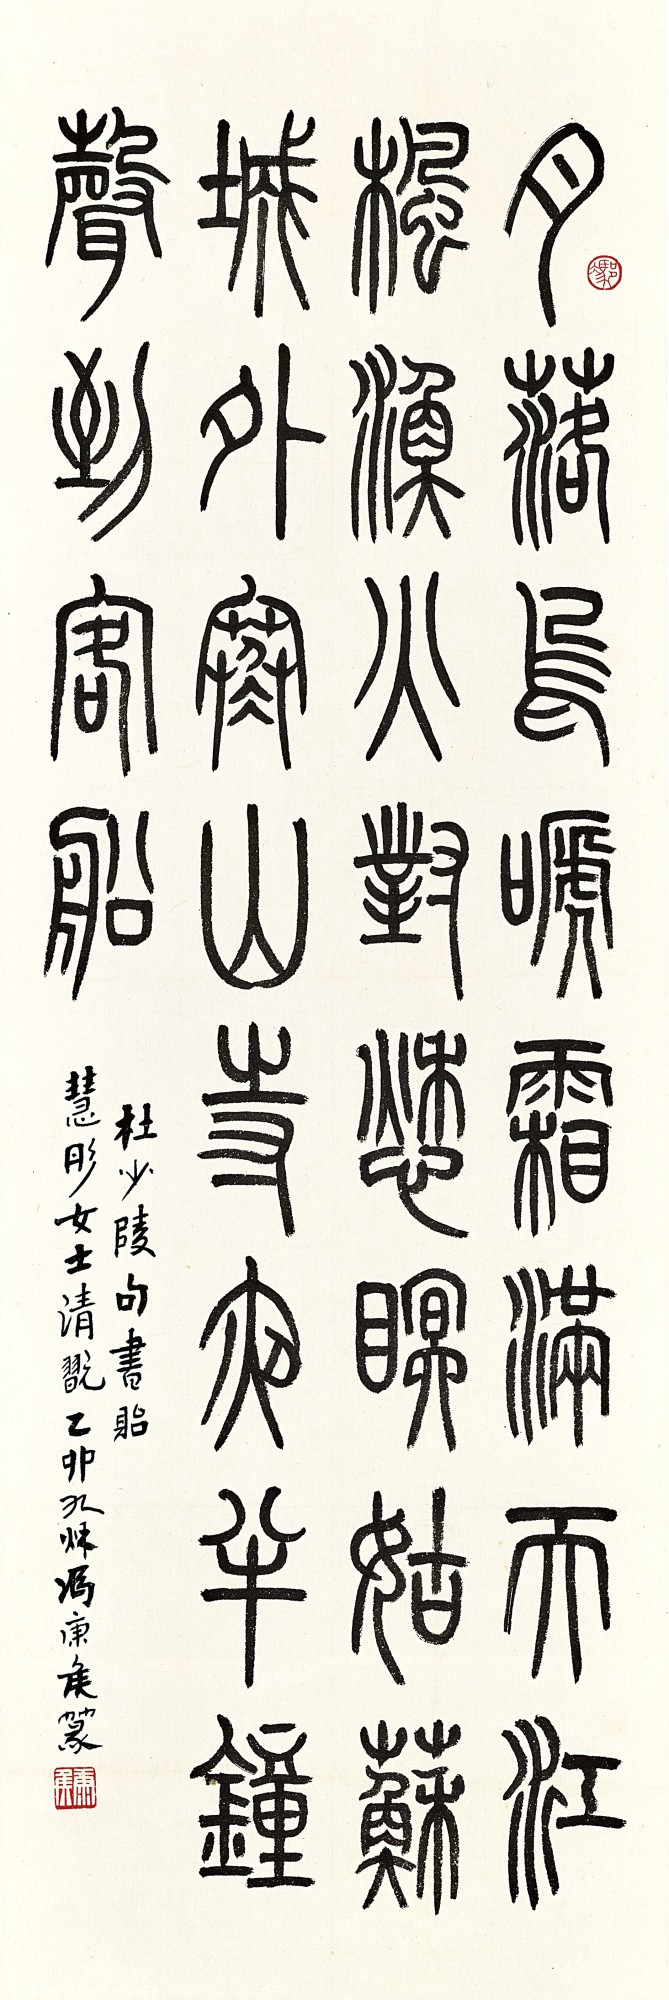 月落烏嗁霜滿天江
楓漁火對愁瞑姑蘇
城外寒山寺夜半鐘
聲到客船
杜少陵句書貽
慧彤女士清翫乙卯九秋馮康侯篆
康侯